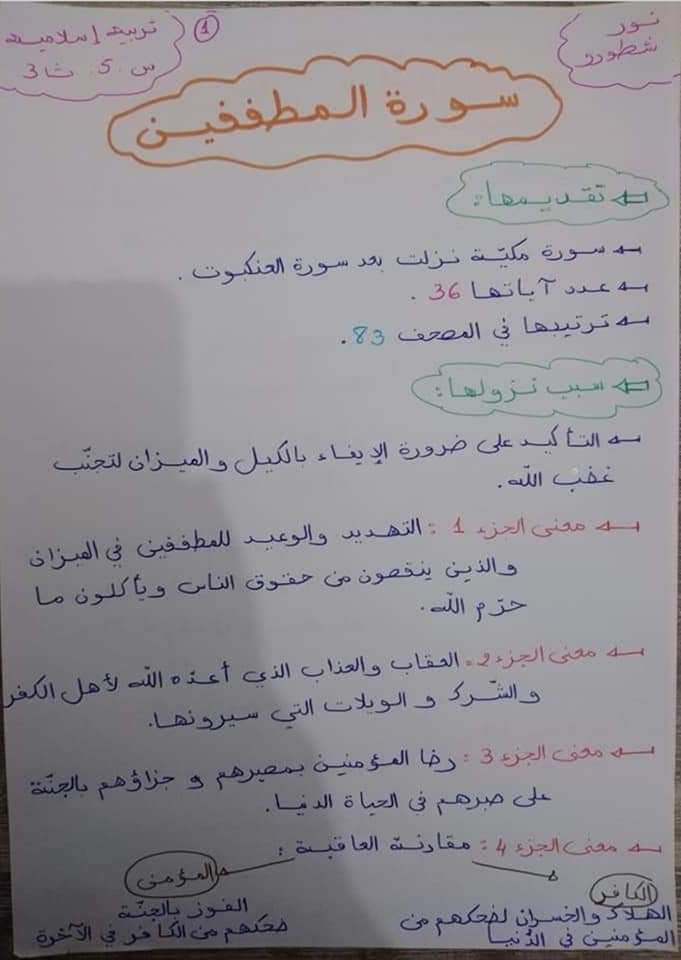 نور
شطورو
1
تربية إسلامية
س 5 ثا 3
سورة المطففين
تقديمها:
سورة مكيّة نزلت بعد سورة العنكبوت.
عدد آياتها 36.
ترتيبها في المصحف 83.
سبب نزولها:
التأكيد على ضرورة الإيفاء بالكيل والميزان لتجنّب
غضب اللّه.
معنى الجزء 1: التهديد والوعيد للمطففين في الميزان
والذين ينقصون من حقوق الناس ويأكلون ما
حرّم اللّه.
معنى الجزء 2: العقاب والعذاب الذي أعدّه اللّه لأهل الكفر
والشّرك و الويلات التي سيرونها.
معنى الجزء 3: رضا المؤمنين بمصيرهم و جزاؤهم بالجنّة
على صبرهم في الحياة الدنيا.
معنى الجزء 4: مقارنة العاقبة:
الكافر
الهلاك والخسران لضحكهم من
المؤمنين في الدّنيا
المؤمن
الفوز بالجنّة
ضحكهم من الكافر في الآخرة